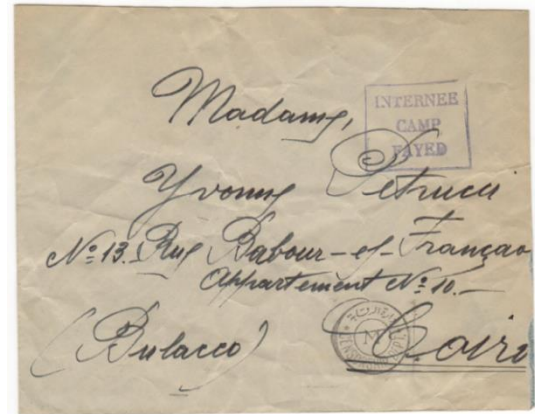 Madame,
INTERNEE
CAMP
FAYED
Yvonne Petrucci
No: 13. Rue Babour-el-Françao
Appartement No: 10.-
(Bulacco) Caire